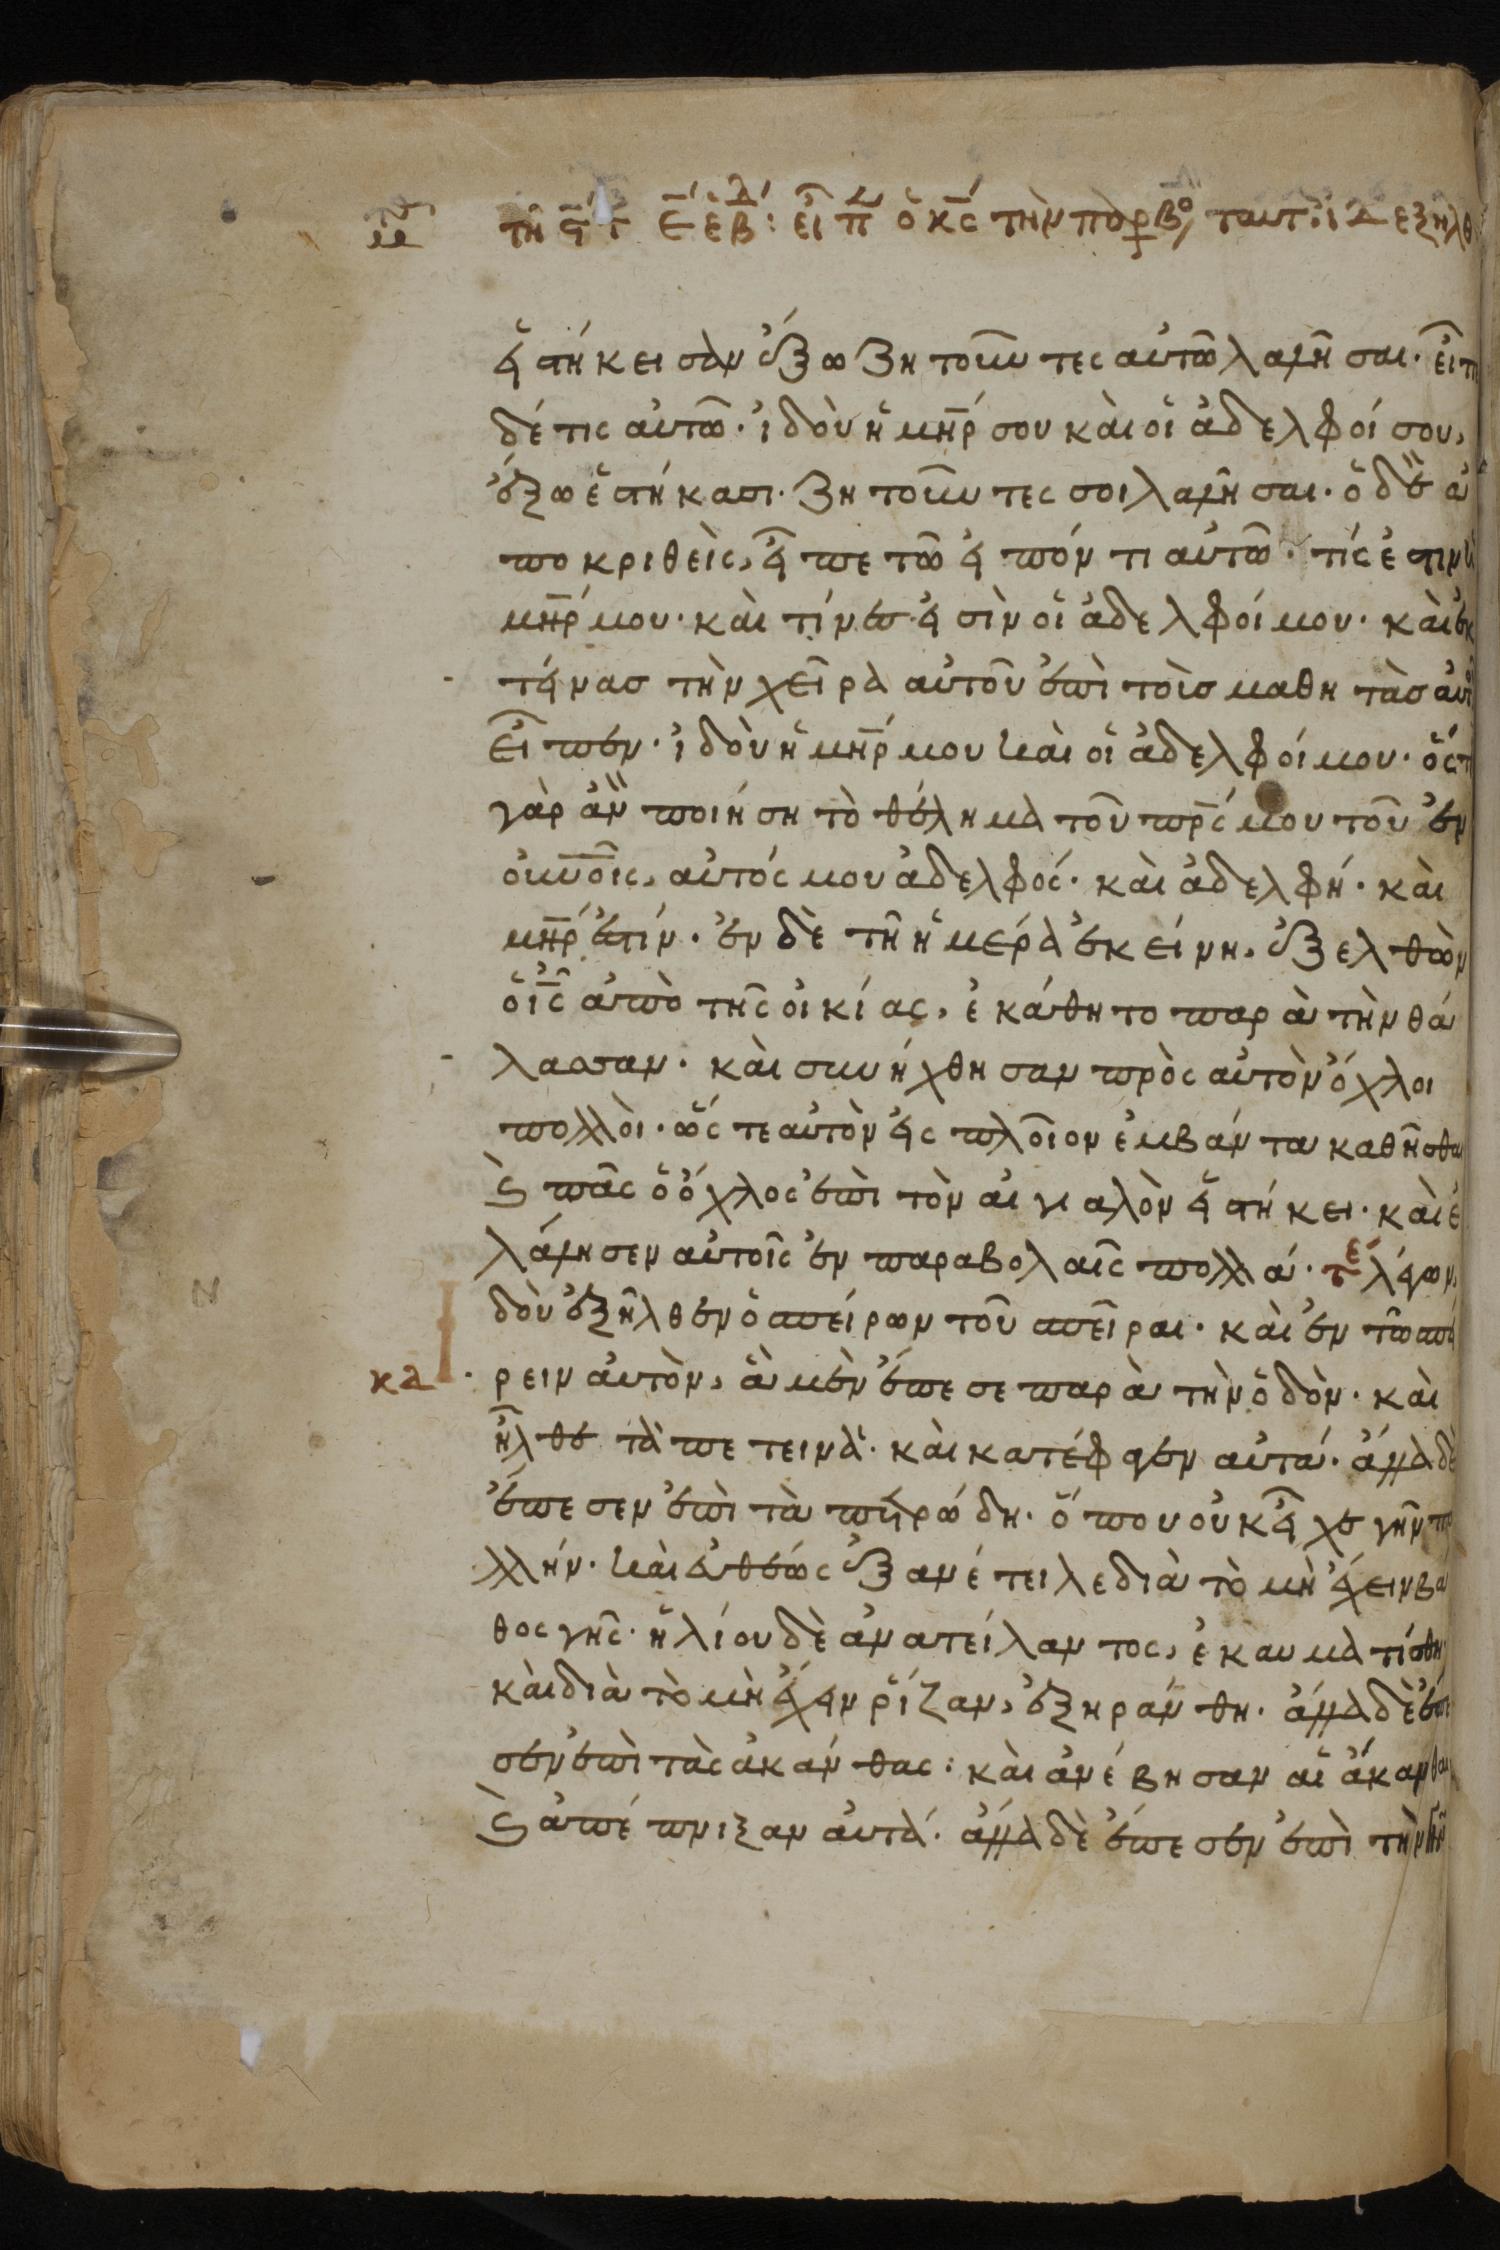 τῆ ϛ̄ τ̄ ε̄ ἑβδ: εἶπ ὁ κ̅ς̅ τὴν παρβο ταυτ· ἰδ ἐξῆλθ
εἱστήκεισαν ἔξω ζητοῦντες αὐτῶ λαλῆσαι· εἶπ
δέ τις αὐτῶ· ἰδοὺ ἡ μη̅ρ σου καὶ οἱ ἀδελφοί σου,
ἔξω ἑστήκασι· ζητοῦντες σοι λαλῆσαι· ὁ δὲ ἀ
ποκριθεὶς, εἶπε τῶ εἰπόντι αὐτῶ· τίς ἐστιν ἡ
μη̅ρ μου· καὶ τίνες εἰσὶν οἱ ἀδελφοί μου· καὶ ἐκ
τείνασ τὴν χεῖρα αὐτοῦ ἐπὶ τοὶσ μαθητὰσ αὐτοῦ
εἶπεν· ἰδοὺ ἡ μη̅ρ μου καὶ οἱ ἀδελφοί μου· ὅστι
γὰρ ἂν ποιήση τὸ θέλημα τοῦ πρ̅ς μου τοῦ ἐν
οὐνοῖς, αὐτός μου ἀδελφός· καὶ ἀδελφή· καὶ
μη̅ρ ἐστίν· ἐν δὲ τῆ ἡμέρα ἐκείνη, ἐξελθὼν
ὁ ἰ̅ς̅ ἀπὸ τῆς οἰκίας, ἐκάθητο παρὰ τὴν θά
λασσαν· καὶ συνήχθησαν πρὸς αὐτὸν ὄχλοι
πολλοὶ· ὥς τε αὐτὸν εἰς πλοῖον ἐμβάντα καθῆσθαι
ϗ πᾶς ὁ ὄχλος ἐπὶ τὸν αἰγιαλὸν εἱστήκει· καὶ ἐ
λάλησεν αὐτοῖς ἐν παραβολαῖς πολλά· τε λέγων,
Ἰδοὺ ἐξῆλθεν ὁ σπείρων τοῦ σπεῖραι· καὶ ἐν τῶ σπεί
κα ρειν αὐτὸν, ἃ μὲν ἔπεσε παρὰ τὴν ὁδὸν· καὶ
ἦλθε τὰ πετεινὰ· καὶ κατέφαγεν αὐτά· ἄλλα δὲ
ἔπεσεν ἐπὶ τὰ πετρώδη· ὅπου οὐκ εἶχε γῆν πο
λλήν· καὶ εὐθέως ἐξανέτειλε διὰ τὸ μὴ ἔχειν βά
θος γῆς· ἡλίου δὲ ἀνατείλαντος, ἐκαυματίσθη
καὶ διὰ τὸ μὴ ἔχειν ῥίζαν, ἐξηράνθη· ἄλλα δὲ ἔπε
σεν ἐπὶ τὰς ἀκάνθας: καὶ ἀνέβησαν αἱ ἄκανθαι
ϗ ἀπέπνιξαν αὐτά· ἄλλα δὲ ἔπεσεν ἐπὶ τὴν γῆν